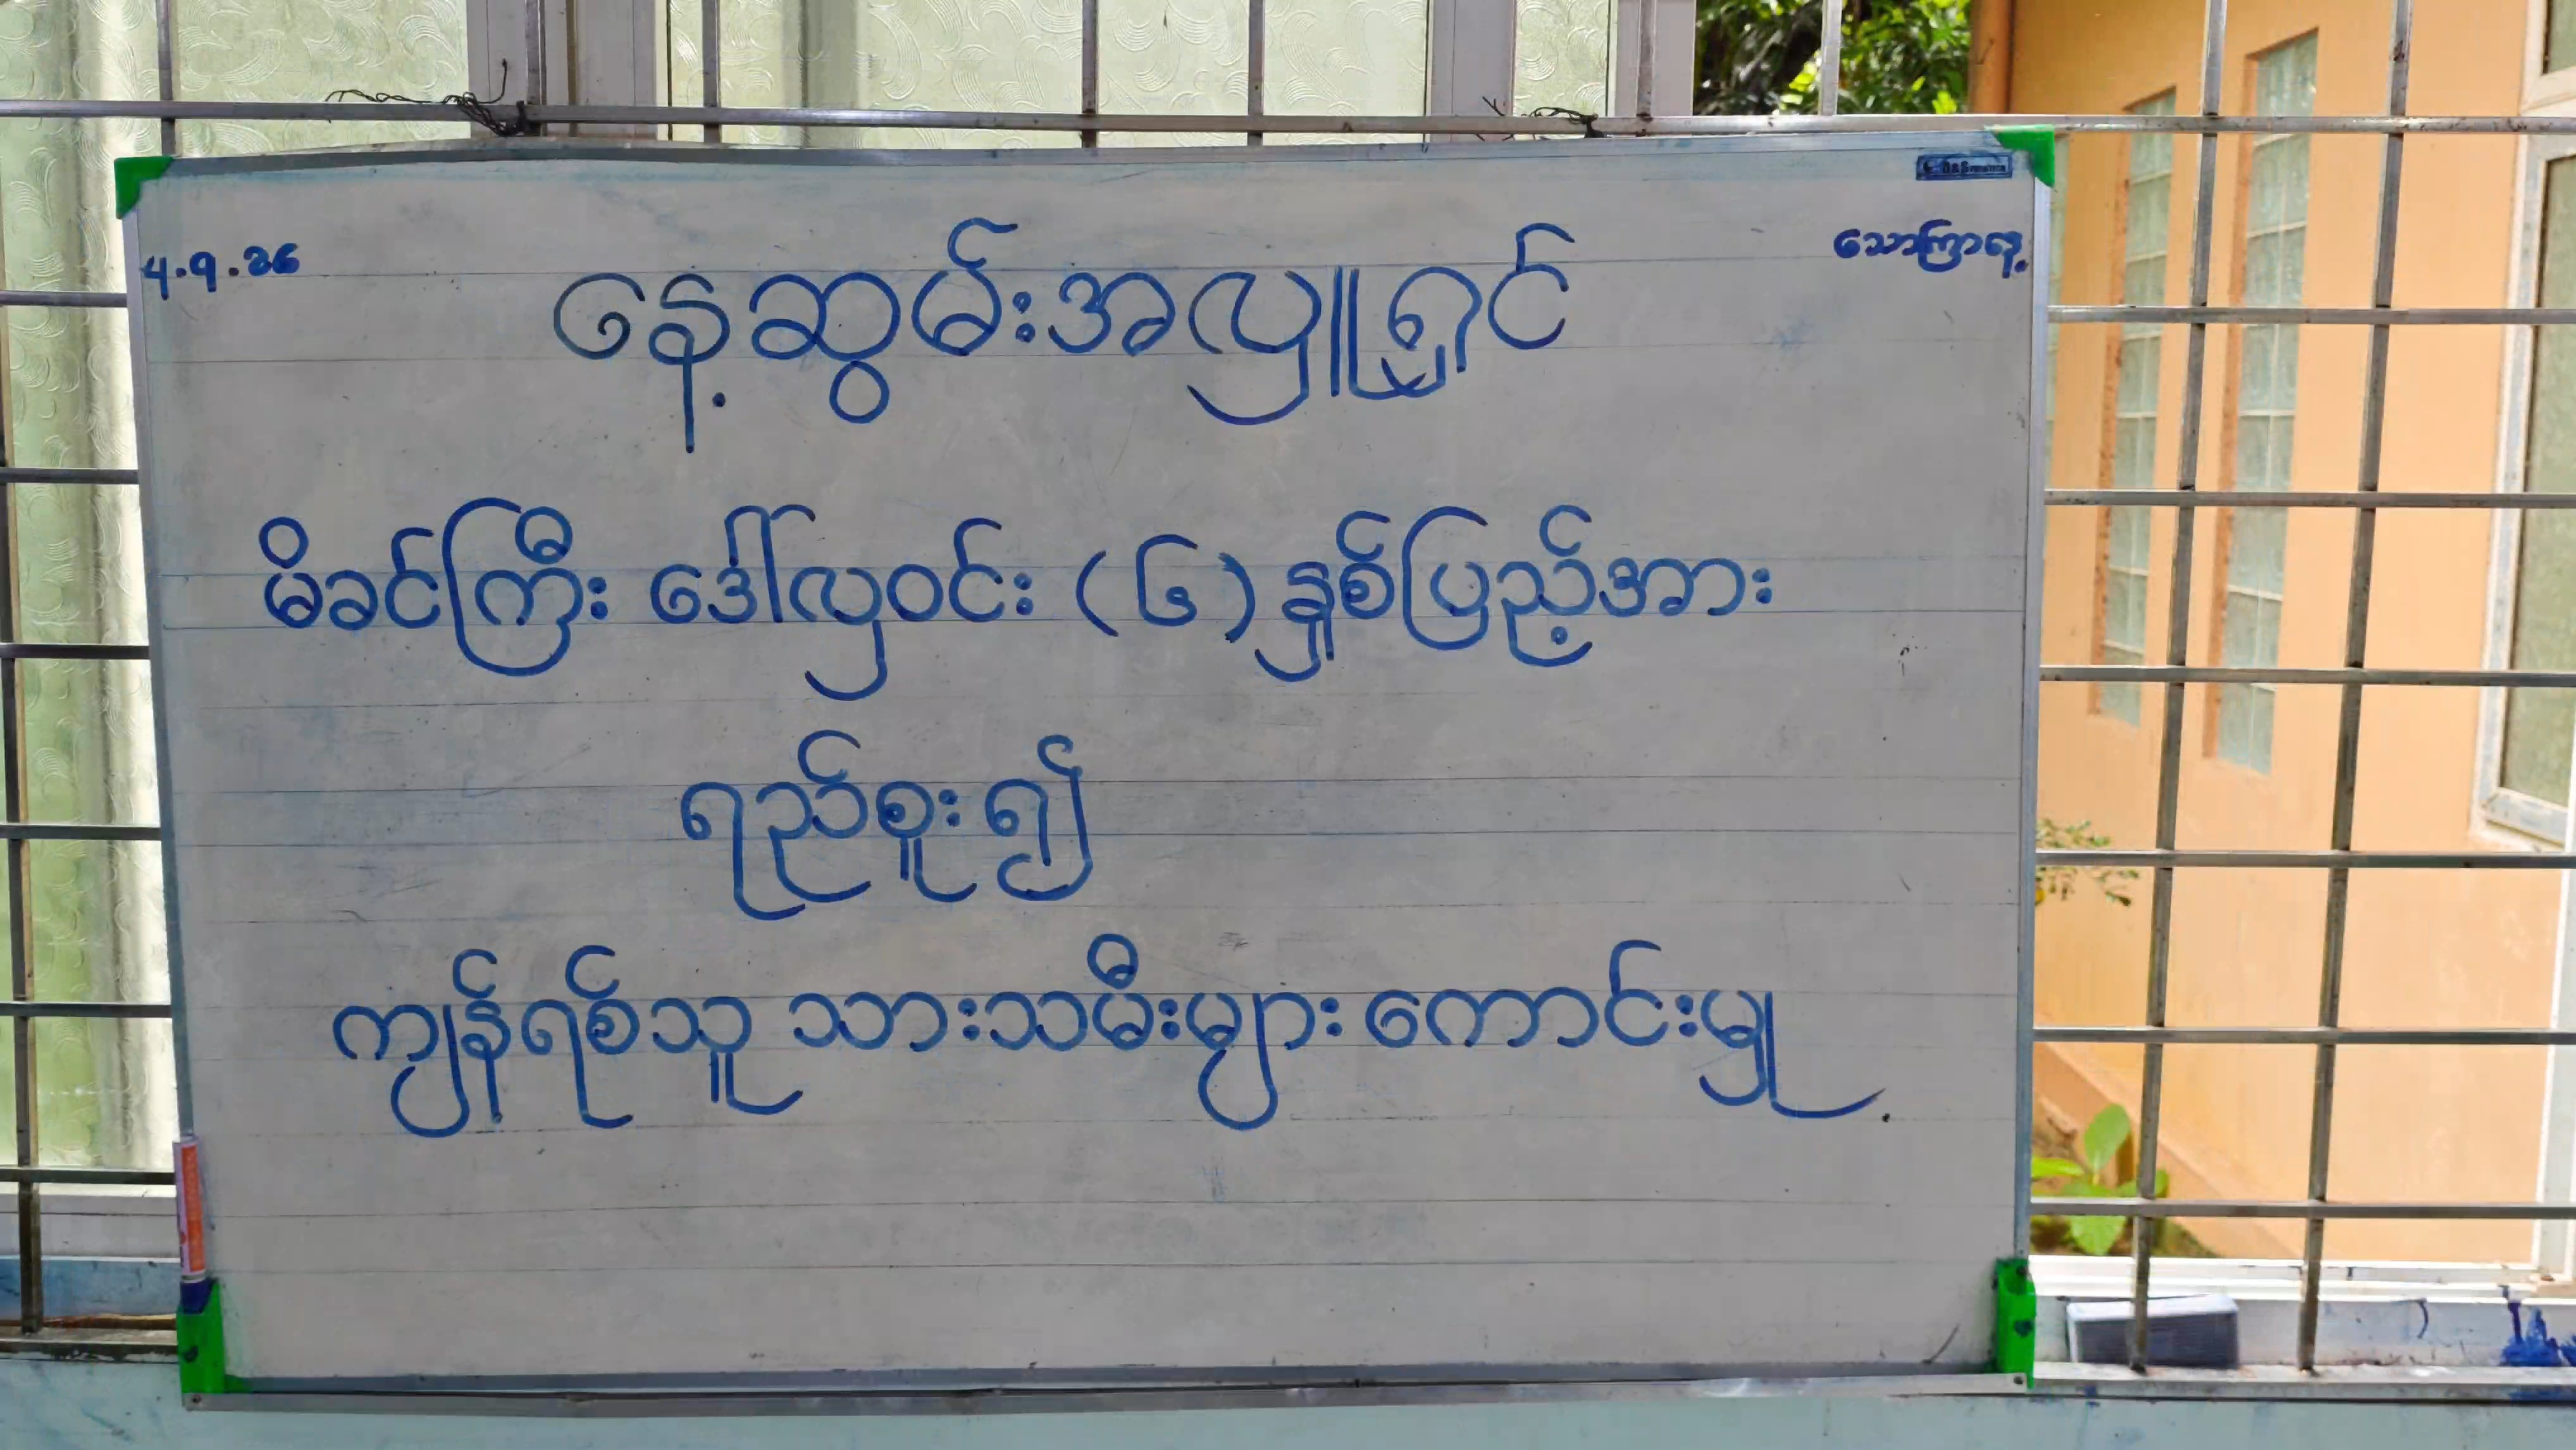 4.9.26
သောကြာနေ့
နေ့ဆွမ်းအလှူရှင်
မိခင်ကြီး ဒေါ်လှဝင်း (၆) နှစ်ပြည့်အား
ရည်စူး၍
ကျန်ရစ်သူ သားသမီးများ ကောင်းမှု